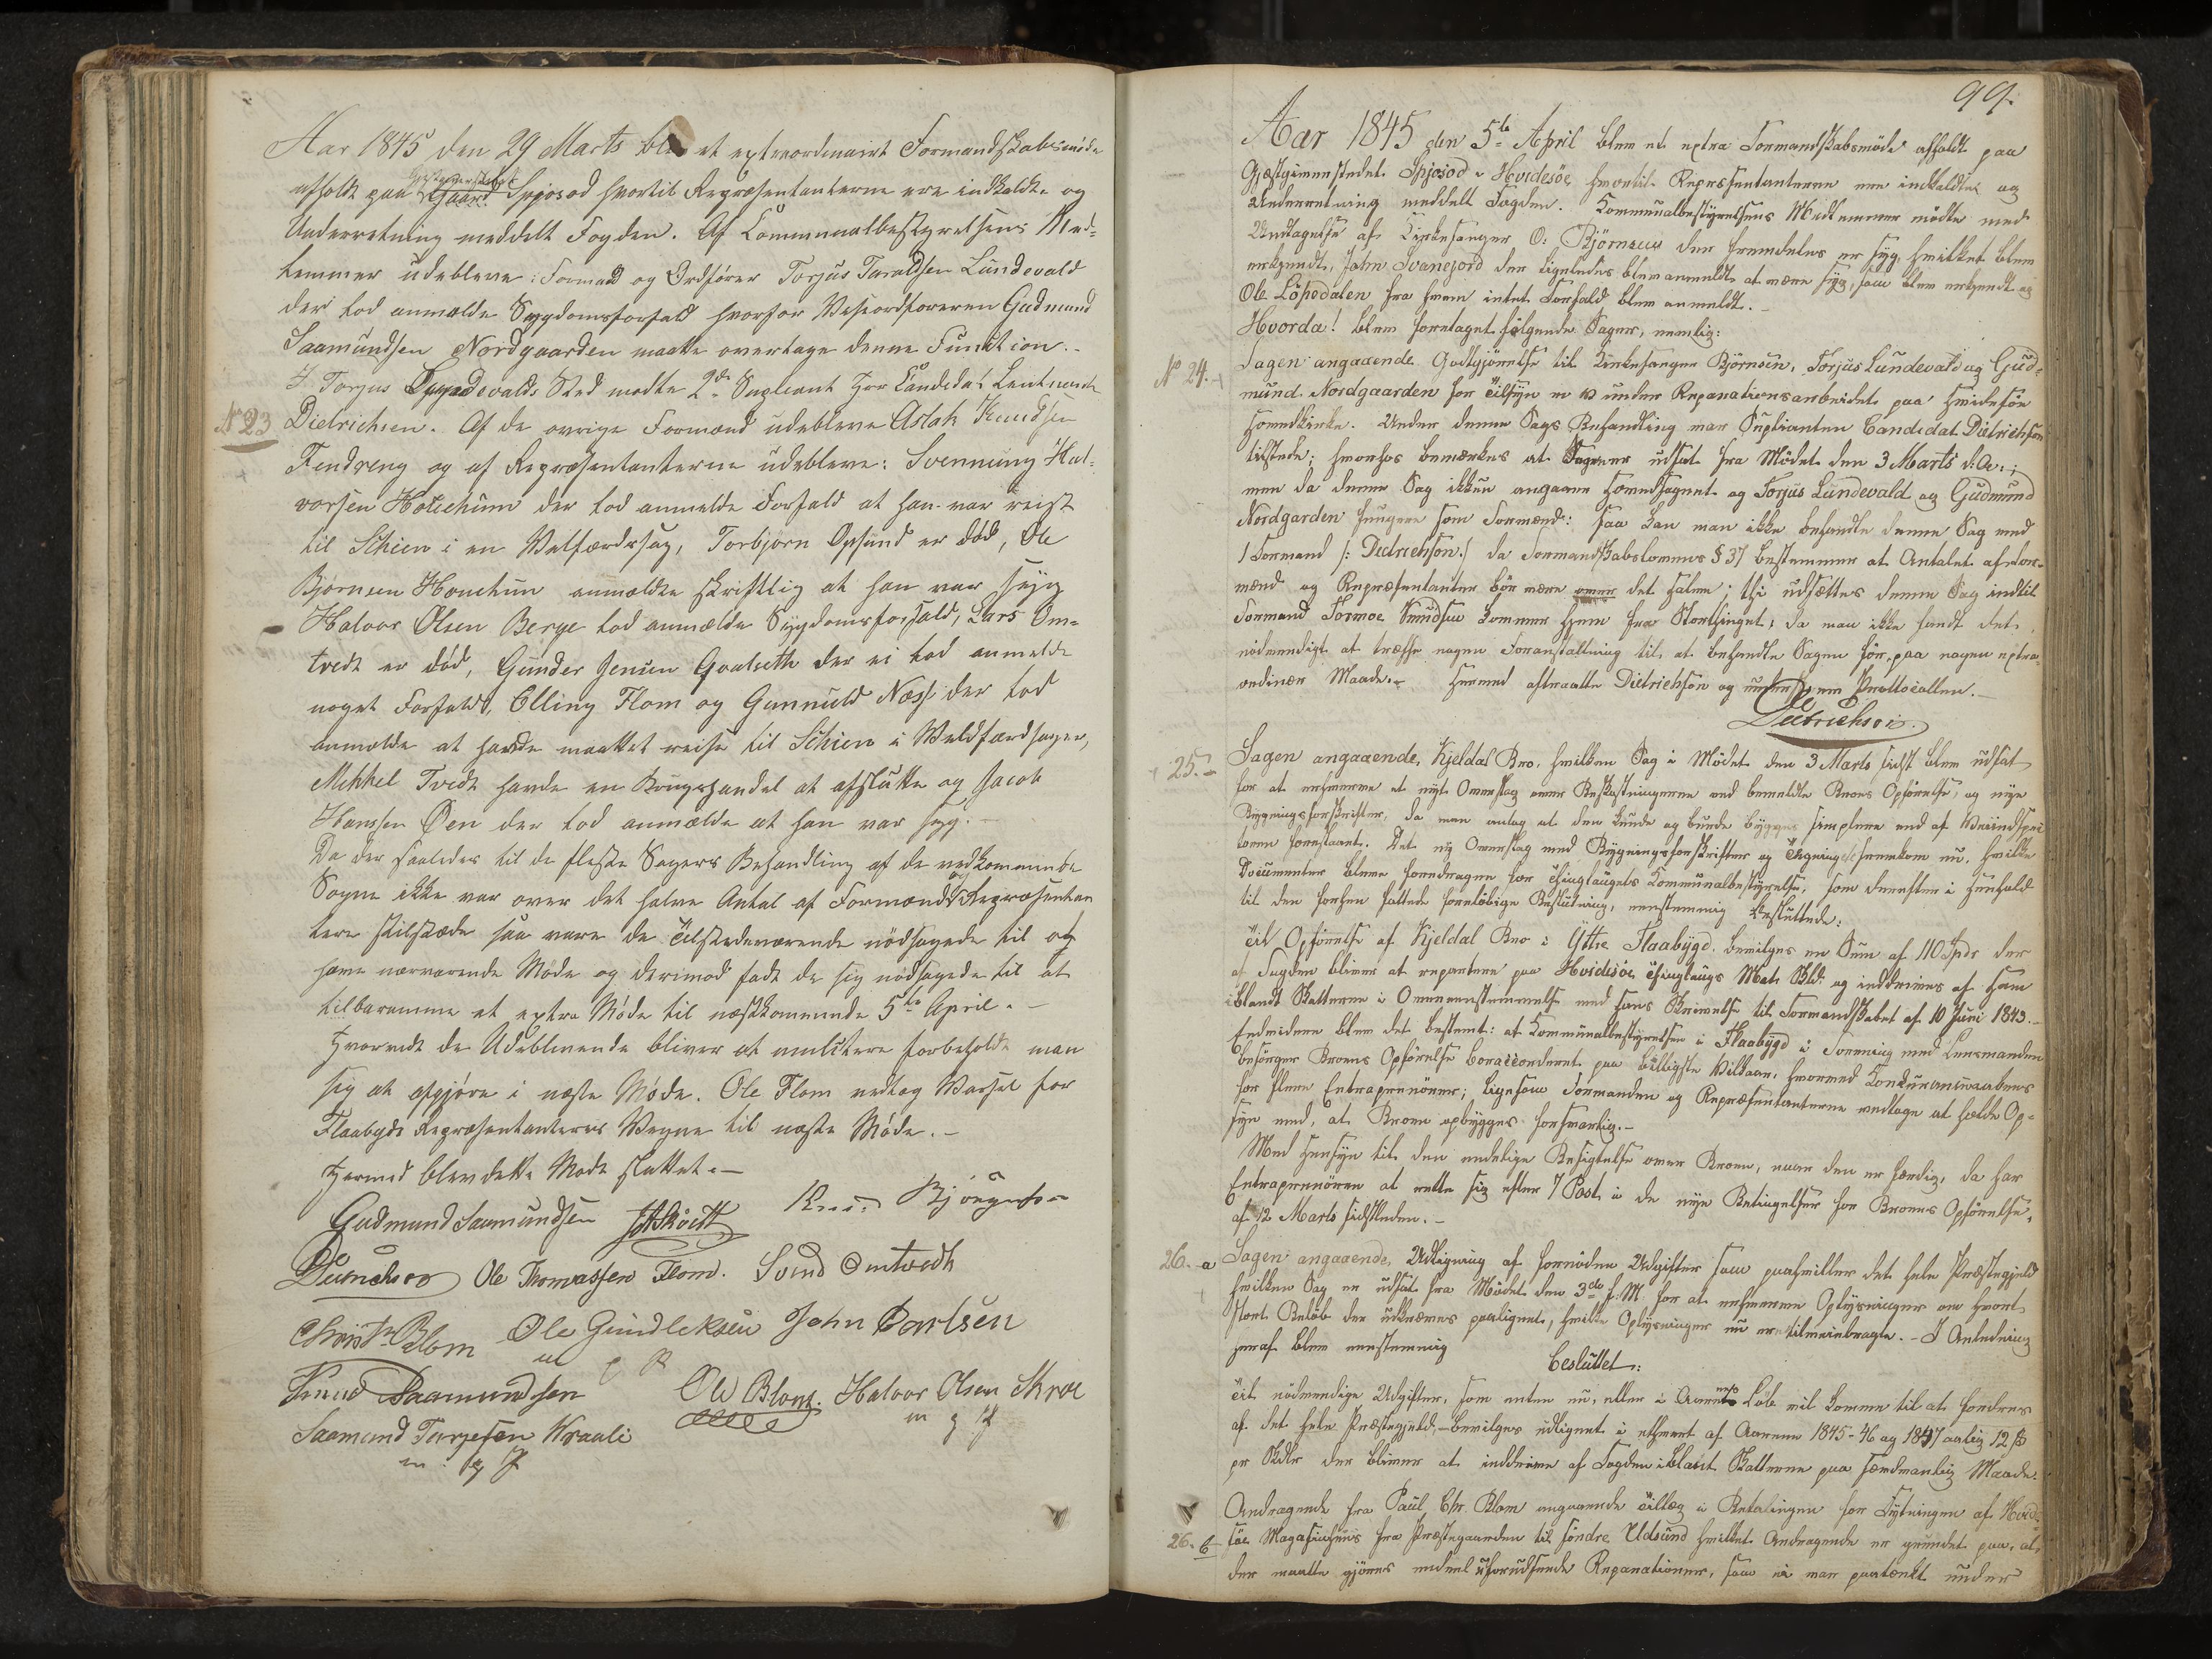 Aar 1845 den 29 Marts blev et extraordinairt Formandskabsmöde
afholdt paa Gaard Spjosod hvortil Repræsentanterne ere indkaldte og
Underretning meddelt Fogden. Af Communalbestyrelsens Med-
lemmer udebleve: Formand og Ordförer Torjus Taraldsen Lundevald
der lod anmælde Sygdomsforfald hvorfor Viseordföreren Gudmund
Saamundsen Nordgaarden maatte overtage denne Function.
I Torjus Lundevalds Sted mødte 2de Supleant Herr Candidat Leutnant
N 23 Dietrichsen. Af de øvrige Formænd udebleve Aslak Knudsen
Fendreng og af Repræsentanterne udebleve: Svenning Hal-
vorsen Hotvehuun der lod anmelde Forfald at han var reist
til Schien i en Velfærdssag, Torbjørn Opsund er död, Ole
Bjørnsen Homehuun anmældte skriftlig at han var syg
Halvor Olsen Berge lod anmælde Sygdomsforfald, Lars Om-
tvedt er död, Gunder Jensen Goaluth der ei lod anmelde
noget Forfald, Elling Flom og Gunnuld Næss der lod
anmælde at havde maattet reise til Schien i Veldfærdsager,
Mikkel Tvedt havde en Brugshandel at afslutte og Jacob
Hanssen Øen der lod anmælde at han var syg. –
Da der saaledes til de fleste Sagers Behandling af de vedkommende
Sogne ikke var over det halve Antal af Formænd og Repræsentan
tere tilstæde saa vare de Tilstedeværende nödsagede til at
hæve nærværende Möde og derimod fandt de sig nödsagede til at
tilberamme et extra Möde til næstkommende 5te April. –
Hvorvidt de Udeblevende bliver at mulctere forbeholdt man
sig at afgjöre i næste Möde. Ole Flom vedtog Varsel for
Flaabygds Repræsentanteres Vegne til næste Möde. –
Hermed blev dette Möde sluttet. –
Gudmund Saamundsen Knud Bjöennsen
Dietrichson Ole Thomassen Flom. Svend Omtvedt
Christ. Blom Ole Gundleksen John Carlsen
Knud Saamundsen Ole Blom. Halvor Olsen Skroe
Saamund Torjesen Kraali
m. f. P.
99.
Aar 1845 den 5te April blev et extra Formandskabsmöde afholdt paa
Gjæstgiverstedet Spjosod i Hvidesöe, hvortil Repræsentanterne ere indkaldte og
Underretning meddelt Fogden. Kommunalbestyrelsens Medlemmer mödte med
Undtagelse af Kirkesanger O: Björnsen der fremdeles er syg, hvilket blev
erkjendt, John Svanejord der ligeledes blev anmeldt at være syg, som blev erkjendt og
Ole Löpedalen fra hvem intet Forfald blev anmeldt. –
Hvorda! blev foretaget følgende Sager, nemlig:
No 24. Sagen angaaende Godtgjörelse til Kirkesanger Björnsen, Torjus Lundevald og Gud-
mund Nordgaarden for Tilsyn under Reparationsarbeidet paa Hvidesöe
Hovedkirke. Under denne Sags Behandling var Suplianten Candidat Dietrichson
tilstede; hvorhos bemærkes at Sagen er udsat fra Mödet den 3 Marts d: A:;
men da denne Sag ikkun angaaer Hovedsognet og Torjus Lundevald og Gudmund
Nordgarden fungere som Formænd: saa kan man ikke behandle denne Sag med
1 Formand /: Dietrichson :/ da Formandskabslovens § 37 bestemmer at Antalet af For-
mænd og Repræsentanter bör være over det halve; thi udsættes denne Sag indtil
Formand Tormoe Knudsen kommer hjem fra Storthinget, da man ikke fandt det
nödvendigt at træffe nogen Foranstaltning til at behandle Sagen för paa nogen extra-
ordinær Maade. – Hermed aftraadte Dietrichson og underskrev Prottocollen. –
Dietrichson.
25. – Sagen angaaende Kjeldal Bro, hvilken Sag i Mödet den 3 Marts sidst blev udsat
for at erhverve et nyt Overslag over Bekostningerne ved bemeldte Broes Opförelse, og nye
Bygningsforskrifter, da man antog at den kunde og burde bygges simplere end af Veiindspec
teuren foreslaaet. Det ny Overslag med Bygningsforskrifter og Tegning fremkom nu, hvilke
Documenter bleve foredragne for Thinglaugets Kommunalbestyrelse, som derefter i Henhold
til den forhen fattede foreløbige Beslutning, eenstemmig besluttede:
Til Opförelse af Kjeldal Bro i Yttre Flaabygd bevilges en Sum af 110 Spdr der
af Fogden bliver at repartere paa Hvidesöe Thinglaugs Mat. Skld: og inddrives af ham
iblandt Skatterne i Overeensstemmelse med hans Skrivelse til Formandskabet af 10 Juni 1843. –
Endvidere blev det bestemt: at Kommunalbestyrelsen i Flaabygd i Forening med Lensmanden
besörger Broens Opförelse bortaccorderet paa billigste Vilkaar, hvorved Konkurance aabnes
for flere Entreprenörer; ligesom Formanden og Repræsentanterne vedtage at holde Op-
syn med, at Broen opbygges forsvarlig. –
Med Hensyn til den endelige Besigtelse over Broen, naar den er færdig, da har
Entreprenören at rette sig efter 7 Post i de nye Betingelser for Broens Opförelse,
af 12 Marts sidstleden. –
26. a Sagen angaaende Udligning af fornödne Udgifter som paahviler det hele Præstegjeld
hvilken Sag er udsat fra Mödet den 3die f: M. for at erhverve Oplysninger om hvort
stort Belöb der udkræves paalignet, hvilke Oplysninger nu ere tilveiebragte. – I Anledning
heraf blev eenstemmig
besluttet:
Til nödvendige Udgifter, som enten nu, eller i Aarenes Löb vil komme til at fordres
af det hele Præstegjeld, – bevilges udlignet i ethvert af Aarene 1845-46 og 1847 aarlig 12 ß
pr Skdlr der bliver at inddrive af Fogden iblandt Skatterne paa sædvanlig Maade.
Andragende fra Paul Chr. Blom angaaende Tillæg i Betalingen for Flytningen af Hvid-
26. b söe Magasinhuus fra Præstegaarden til söndre Udsund hvilket Andragende er grundet paa, at
der maatte gjöres endeel uforudseede Reparationer, som ei var paatænkt under